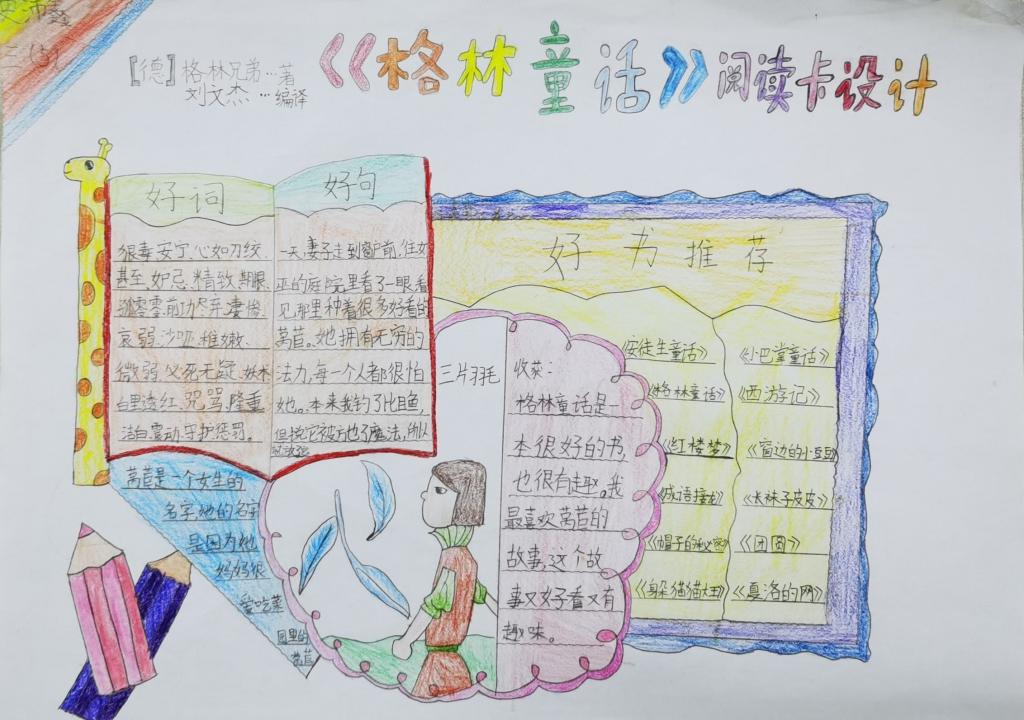 二(3)
[德]格林兄弟…著
刘文杰…编译
《格林童话》阅读卡设计
好词
狠毒、安宁、心如刀绞
甚至、妒忌、精致、
孤零零、前功尽弃、凄惨
哀弱、沙哑、稚嫩、
微弱、必死无疑、
白里透红、咒骂、隆重
洁白、震动、守护、惩罚。
好句
一天,妻子走到窗户前,往女
巫的庭院里看了一眼,看
见那里种着很多好看的
莴苣。她拥有无穷的
法力,每一个人都很怕
她。本来我钓了比目鱼,
但挽它被方也了魔法,所以
莴苣是一个女生的
名字,她的名字
是因为她
妈妈很
爱吃菜
园里的
莴苣
三片羽毛
收获:
格林童话是一
本很好的书,
也很有趣。我
最喜欢莴苣的
故事,这个故
事又好看又有
趣味。
好书推荐
《安徒生童话》
《格林童话》
《红楼梦》
《成语接龙》
《帽子的秘密》
《躲猫猫大王》
《小巴掌童话》
《西游记》
《窗边的小豆豆》
《长袜子皮皮》
《团圆》
《夏洛的网》